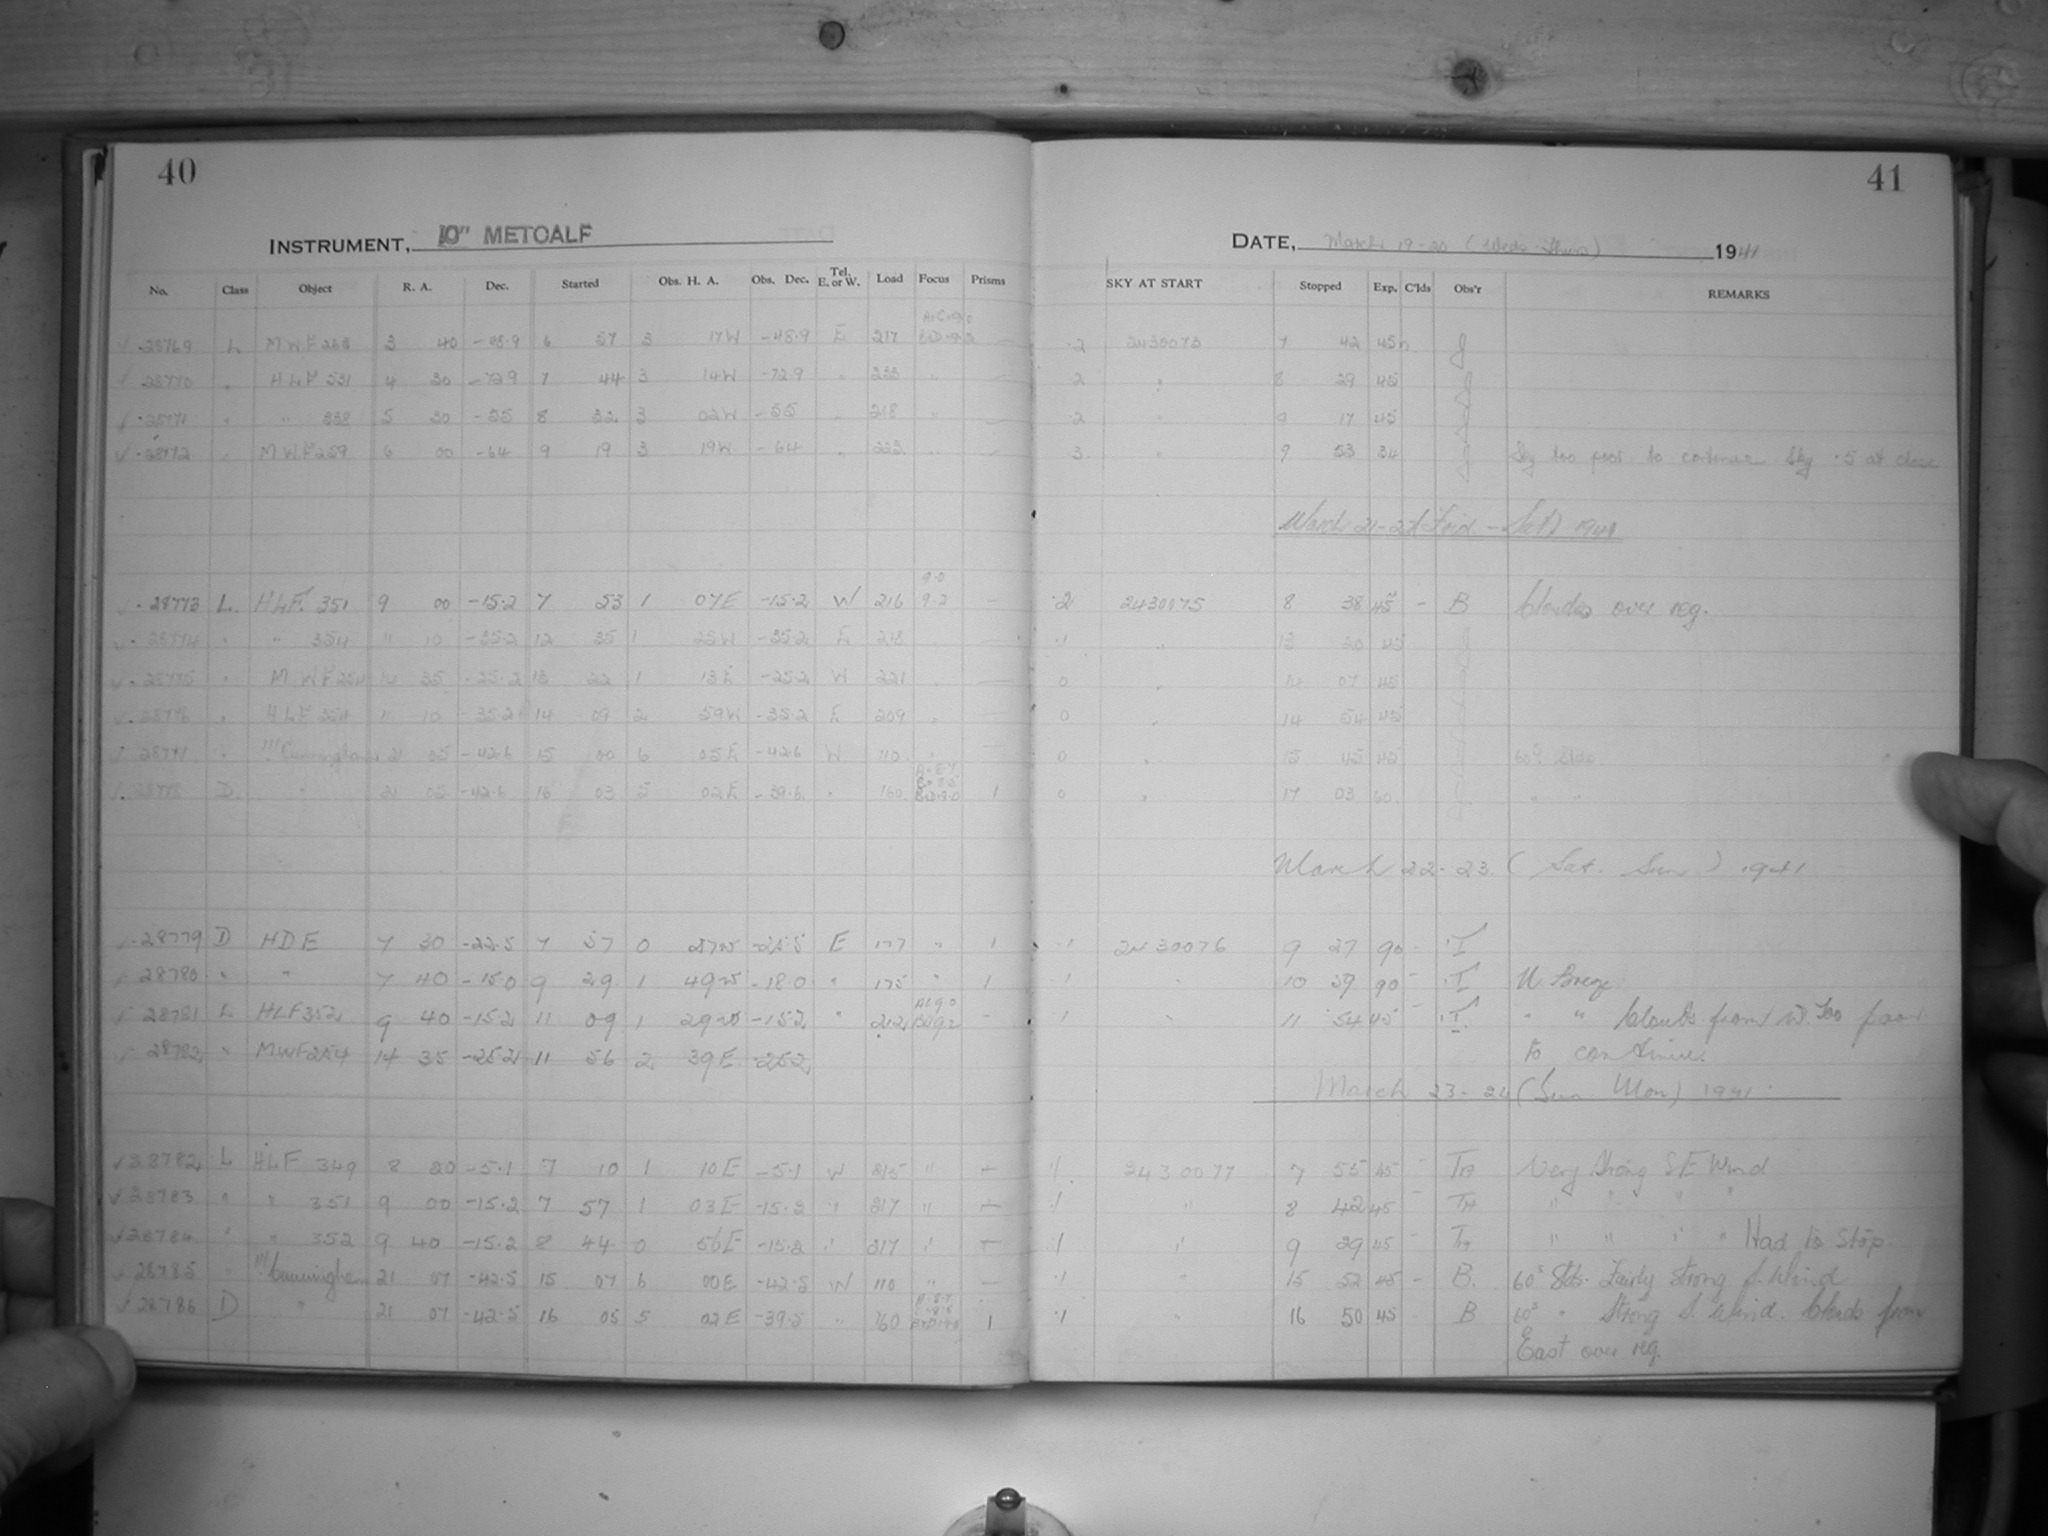 40
41
INSTRUMENT, 10" METCALF
DATE, March 19-20 (Weds-Thurs) 1941
No. Class Object R. A. Dec. Started Obs. H. A. Obs. Dec. Tel. E. or W. Load Focus Prisms SKY AT START Stopped Exp. C'lds Obs'r REMARKS
28769 L MWF 3 40 -48.9 6 57 3 17W -48.9 E 217 — .2 7 42 45 J
28770 " HLF 331 4 30 -72.9 7 44 3 14W -72.9 " " — 2 " 8 29 45
28771 " " 338 5 30 -55 8 32 3 02W -55 " 218 " — .2 " 9 17 45
28772 " MWF 259 6 00 -64 9 19 3 19W -64 " " — 3 " 9 53 34 Sky too poor to continue Sky .5 at close
March 21-22 (Frid.-Sat) 1941
9.0
28773 L. HLF. 351 9 00 -15.2 7 53 1 07E -15.2 W 216 9.2 — .2 2430075 8 38 45 - B Clouds over reg.
28774 " " 354 11 10 -35.2 12 35 1 25W -35.2 E 218 — .1 " 13 20 45
28775 " MWF 254 14 35 -25.2 13 22 1 13E -25.2 W 221 — 0 " 14 07 45
28776 " HLF 354 11 10 -35.2 14 09 2 59W -35.2 E 209 0 " 14 54 45
" Cunningham 21 05 -42.6 15 00 6 05E -42.6 W 110 — 0 " 15 45 45 60s Stds.
D. " 21 05 -42.6 16 03 5 02E -39.6 " 160 1 0 " 17 03 60 " "
March 22-23. (Sat. Sun) 1941
28779 D HDE 7 30 -22.5 7 57 0 27W E 177 " 1 .1 2430076 9 27 90 - I
28780 " " 7 40 9 29 1 49W -18.0 " 175 " 1 .1 " 10 59 90 - I N. Breeze
28781 L HLF 352 9 40 -15.2 11 09 1 29W -15.2 " 212 - 1 " 11 54 45 - I " " Clouds from W. Too poor
28782 " MWF 254 14 35 -25.2 11 56 2 39E -25.2 to continue.
March 23-24 (Sun Mon) 1941
28782 L HLF 349 8 20 -5.1 7 10 1 10E -5.1 W 215 " — .1 2430077 7 55 45 - TH Very Strong SE Wind
28783 " " 351 9 00 -15.2 7 57 1 03E -15.2 " 217 " — .1 " 8 42 45 - TH " " " "
28784 " " 352 9 40 -15.2 8 44 0 56E -15.2 " 217 " — .1 " 9 29 45 - TH " " " " Had to Stop
28785 " Cunningham 21 07 -42.5 15 07 6 00E -42.5 W 110 " — .1 " 15 52 45 - B. 60s Stds. Fairly strong S. Wind
28786 D " 21 07 -42.5 16 05 5 02E -39.5 " 160 1 .1 " 16 50 45 - B 60s " Strong S. Wind. Clouds from
East over reg.